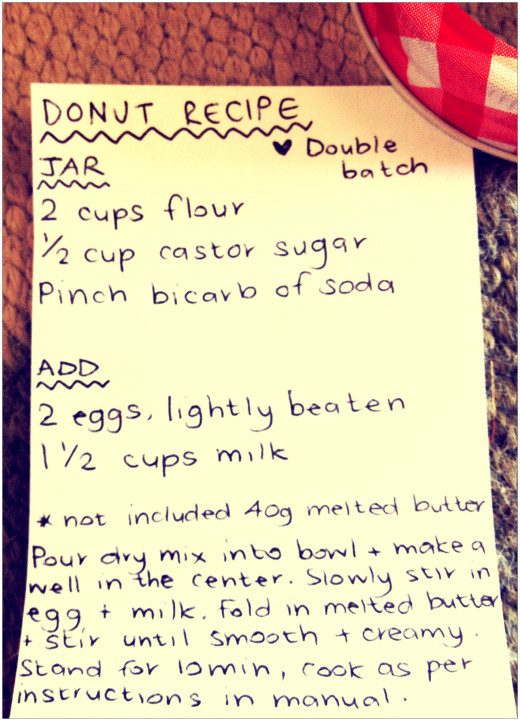 DONUT RECIPE
♥ Double
batch
JAR
2 cups flour
1/2 cup castor sugar
Pinch bicarb of soda
ADD
2 eggs, lightly beaten
1 1/2 cups milk
* not included 40g melted butter
Pour dry mix into bowl + make a
well in the center. Slowly stir in
egg + milk. Fold in melted butter
+ stir until smooth + creamy.
Stand for 10min, cook as per
instructions in manual.